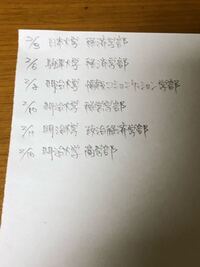 日本大学 経済学部
駒澤大学 経済学部
明治大学 情報コミュニケーション学部
明治大学 経営学部
明治大学 政治経済学部
明治大学 商学部